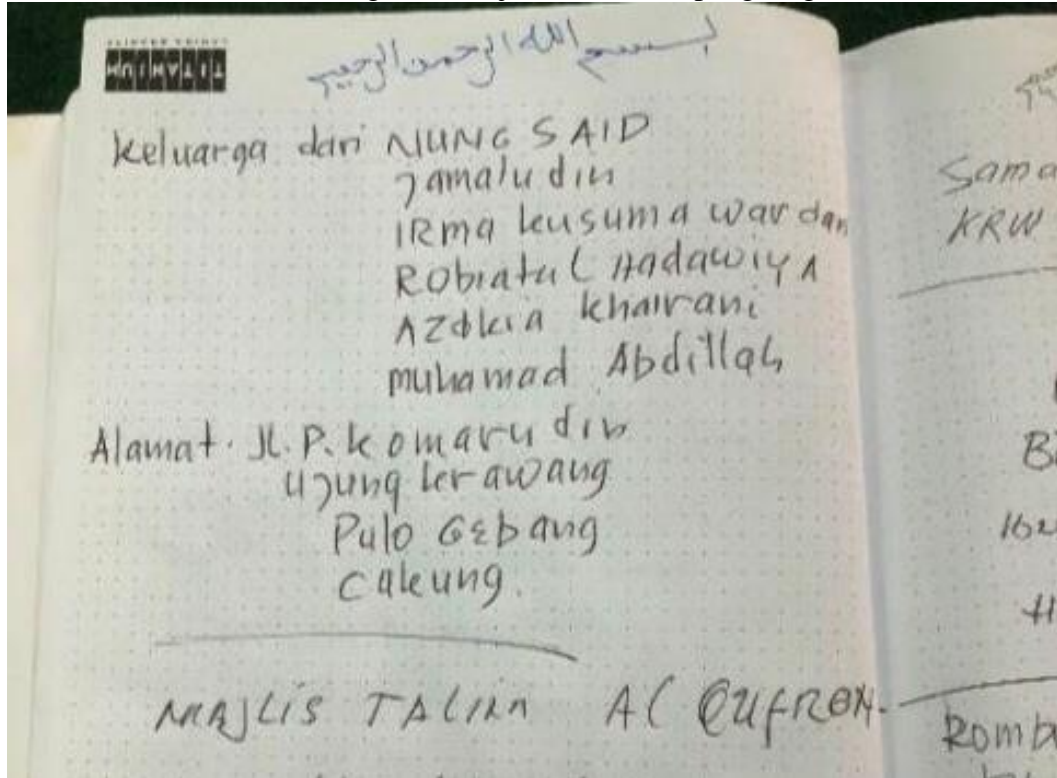 TITANIUM
بسم الله الرحمن الرحيم
Keluarga dari NUNG SAID
Jamaludin
IRma kusuma wardan
RObiatul Hadawiya
Azdkia khairani
muhamad Abdillah
Alamat. Jl. P. komarudin
ujung krawang
Pulo Gebang
Cakung.
MAJLIS TALIM Al GUFRON
Sama
KRW
Romb